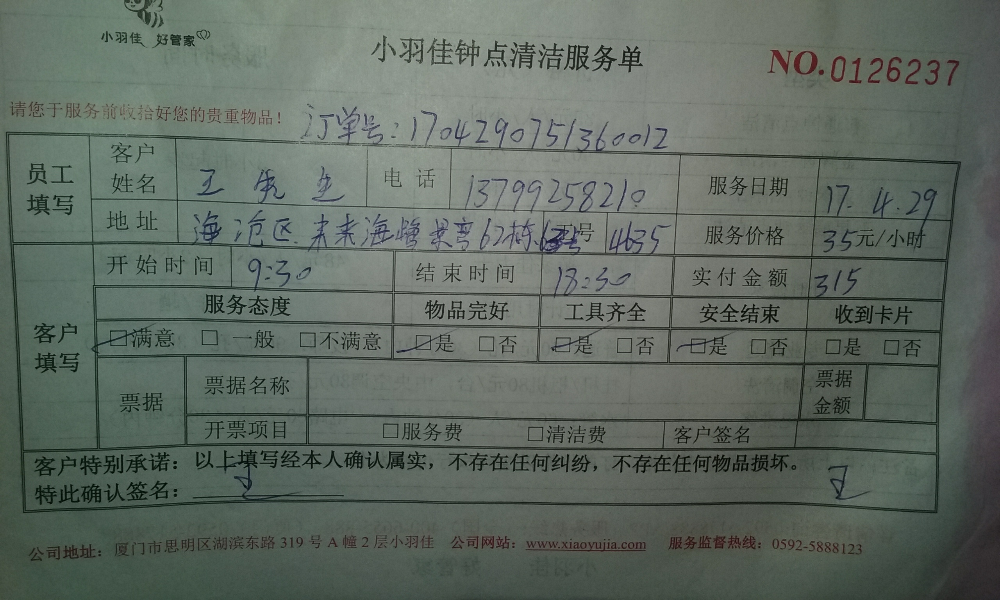 小羽佳 好管家
小羽佳钟点清洁服务单
NO.0126237
请您于服务前收拾好您的贵重物品！
订单号：1704290751360012
员工填写 客户姓名 王先生 电话 13799258210 服务日期 17.4.29
地址 海沧区 未来海 62栋 号 4635 服务价格 35元/小时
客户填写 开始时间 9:30 结束时间 18:30 实付金额 315
服务态度 物品完好 工具齐全 安全结束 收到卡片
☑满意 □一般 □不满意 ☑是 □否 ☑是 □否 ☑是 □否 □是 □否
票据 票据名称 票据金额
开票项目 □服务费 □清洁费 客户签名
客户特别承诺：以上填写经本人确认属实，不存在任何纠纷，不存在任何物品损坏。
特此确认签名：王 王
公司地址：厦门市思明区湖滨东路 319 号 A 幢 2 层小羽佳 公司网站：www.xiaoyujia.com 服务监督热线：0592-5888123